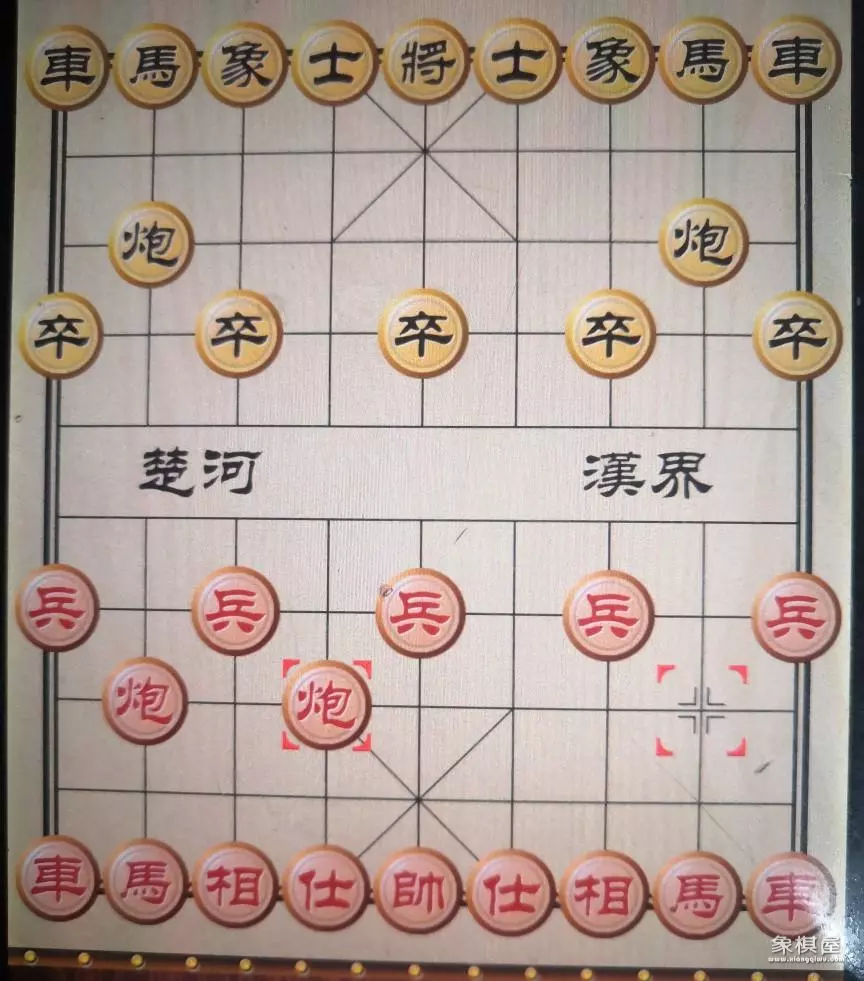 車馬象士將士象馬車
炮炮
卒卒卒卒卒
楚河 漢界
兵兵兵兵兵
炮炮
車馬相仕帥仕相馬車
象棋屋
www.xiangqiwu.com